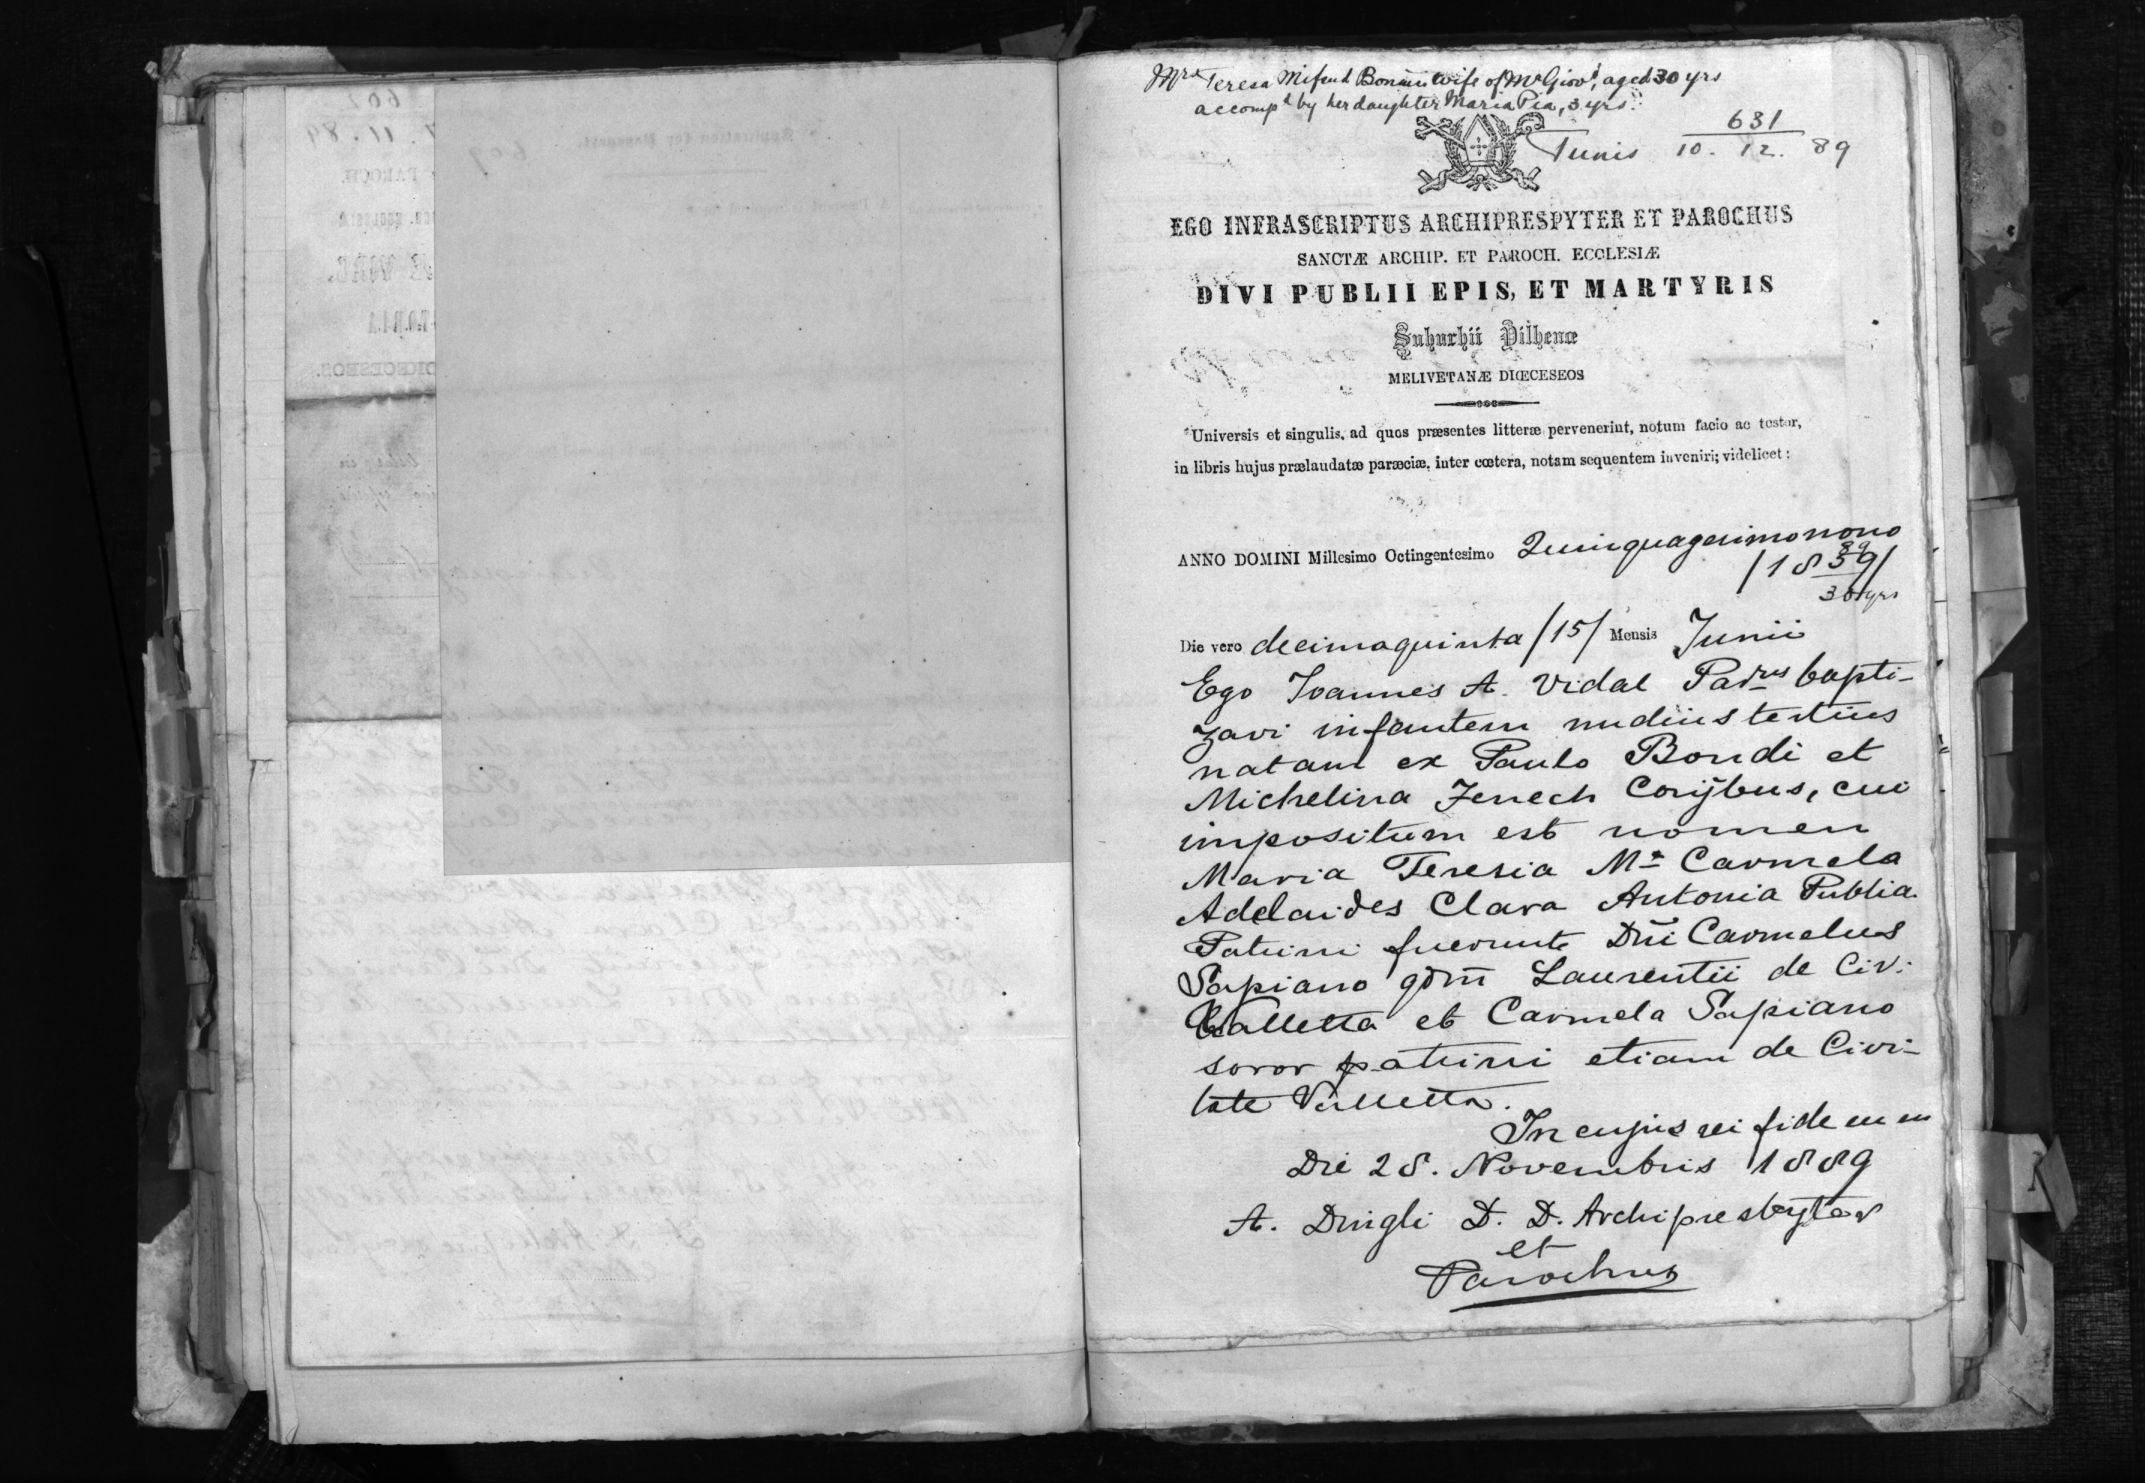 Mrs Teresa Mifsud Bonnici wife of Mr Giov., aged 30 yrs
accompd by her daughter Maria Pia, 3 yrs.
631
Tunis 10. 12. 89
EGO INFRASCRIPTUS ARCHIPRESPYTER ET PAROCHUS
SANCTÆ ARCHIP. ET PAROCH. ECCLESIÆ
DIVI PUBLII EPIS, ET MARTYRIS
Suburbii Vilhenæ
MELIVETANÆ DIŒCESEOS
Universis et singulis, ad quos præsentes litteræ pervenerint, notum facio ac testor,
in libris hujus prælaudatæ paræciæ, inter cœtera, notam sequentem inveniri; videlicet:
ANNO DOMINI Millesimo Octingentesimo Quinquagesimonono
89
/1859/
30 yrs
Die vero decimaquinta /15/ Mensis Junii
Ego Joannes A. Vidal Parus bapti-
zavi infantem nudiustertius
natam ex Paulo Bondi et
Michelina Zenech Conjbus, cui
impositum est nomen
Maria Teresia Ma Carmela
Adelaides Clara Antonia Publia.
Patrini fuerunt Dni Carmelus
Sapiano qdm Laurentii de Civ:
Valletta et Carmela Sapiano
soror patrini etiam de Civi-
tate Valletta.
In cujus rei fidem
Die 28. Novembris 1889
A. Dingli D. D. Archipresbyter
et
Parochus